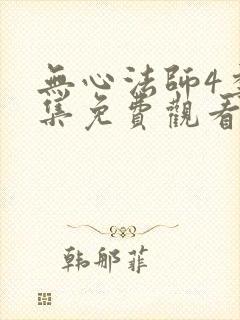 無心法師4季
集免費觀看
韩郍菲